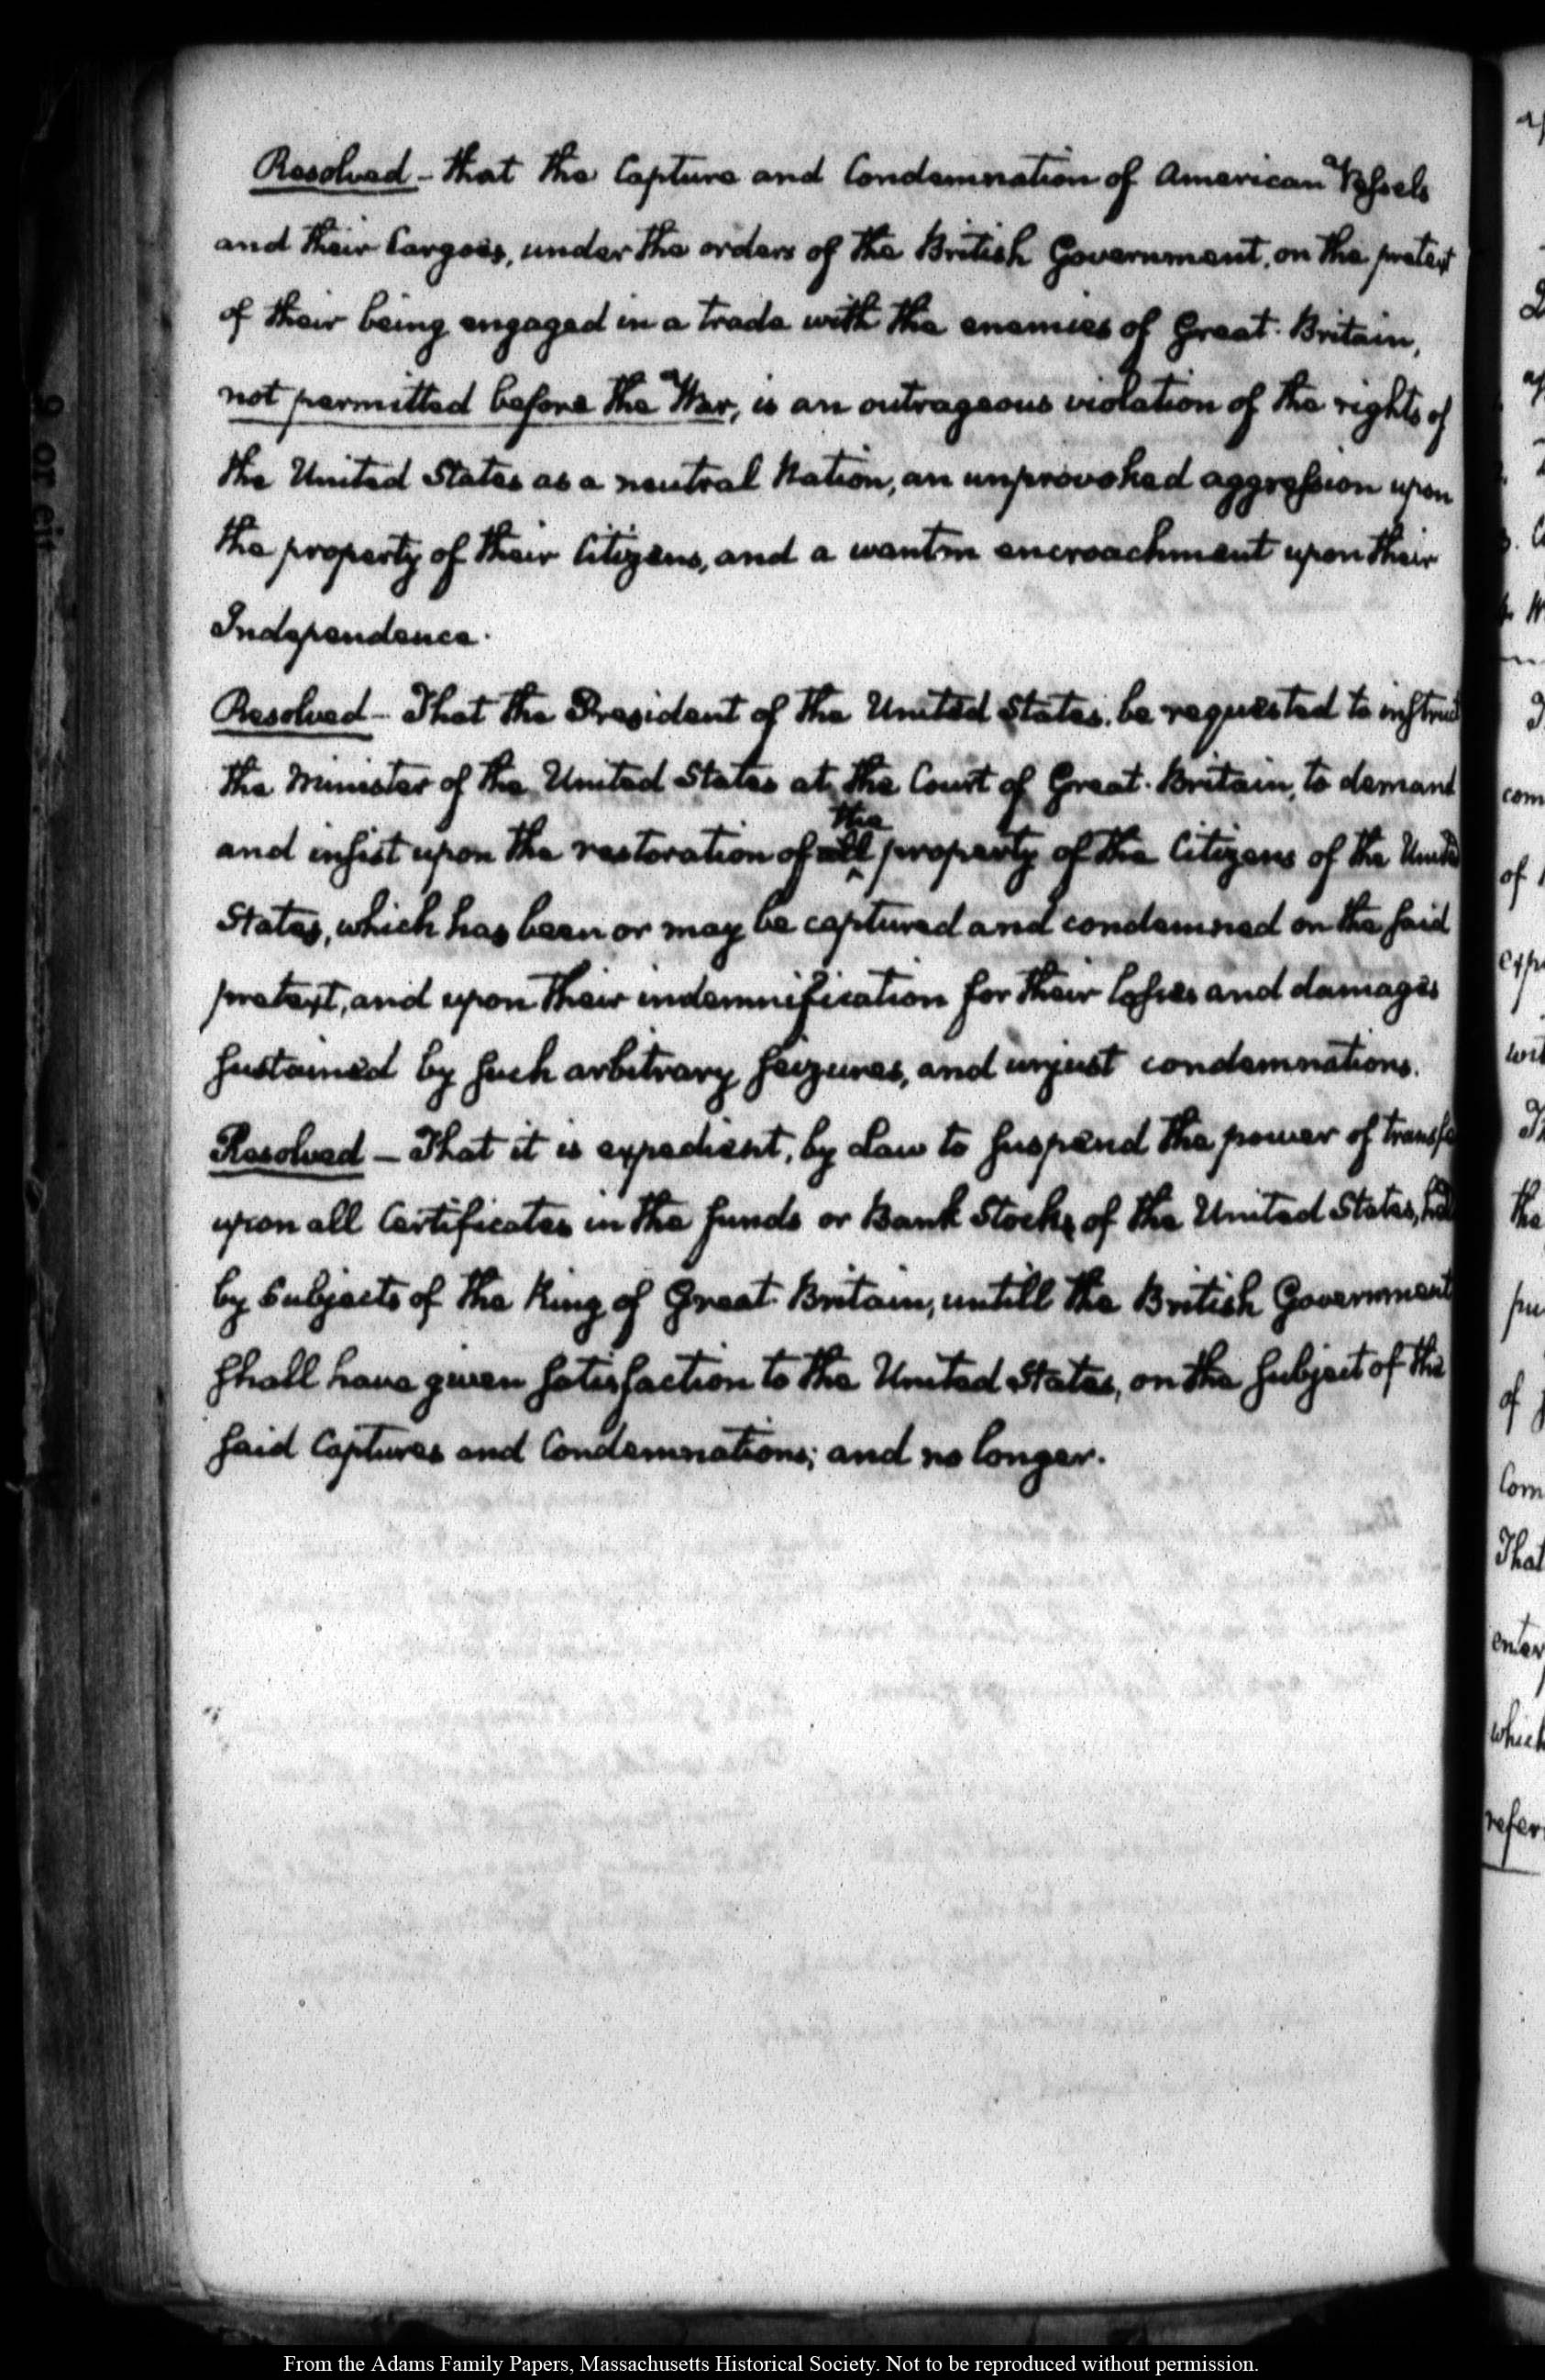 Resolved - that the Capture and Condemnation of American Vessels
and their Cargoes, under the orders of the British Government, on the pretext
of their being engaged in a trade with the enemies of Great-Britain,
not permitted before the War, is an outrageous violation of the rights of
the United States as a neutral Nation, an unprovoked aggression upon
the property of their Citizens, and a wanton encroachment upon their
Independence.
Resolved - That the President of the United States, be requested to instruct
the Minister of the United States at the Court of Great-Britain, to demand
the
and insist upon the restoration of all property of the Citizens of the United
States, which has been or may be captured and condemned on the said
pretext, and upon their indemnification for their losses and damages
sustained by such arbitrary seizures, and unjust condemnations.
Resolved - That it is expedient, by Law to suspend the power of transfe
upon all Certificates in the funds or Bank Stocks of the United States, held
by Subjects of the King of Great-Britain, untill the British Government
shall have given satisfaction to the United States, on the subject of the
said Captures and Condemnations; and no longer.
com
of
the
of
Com
That
enter
which
refer
From the Adams Family Papers, Massachusetts Historical Society. Not to be reproduced without permission.